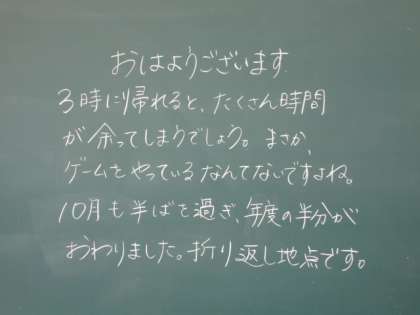 おはようございます
3時に帰れると、たくさん時間
が余ってしまうでしょう。まさか、
ゲームをやっているなんてないですよね。
10月も半ばを過ぎ、年度の半分が
おわりました。折り返し地点です。